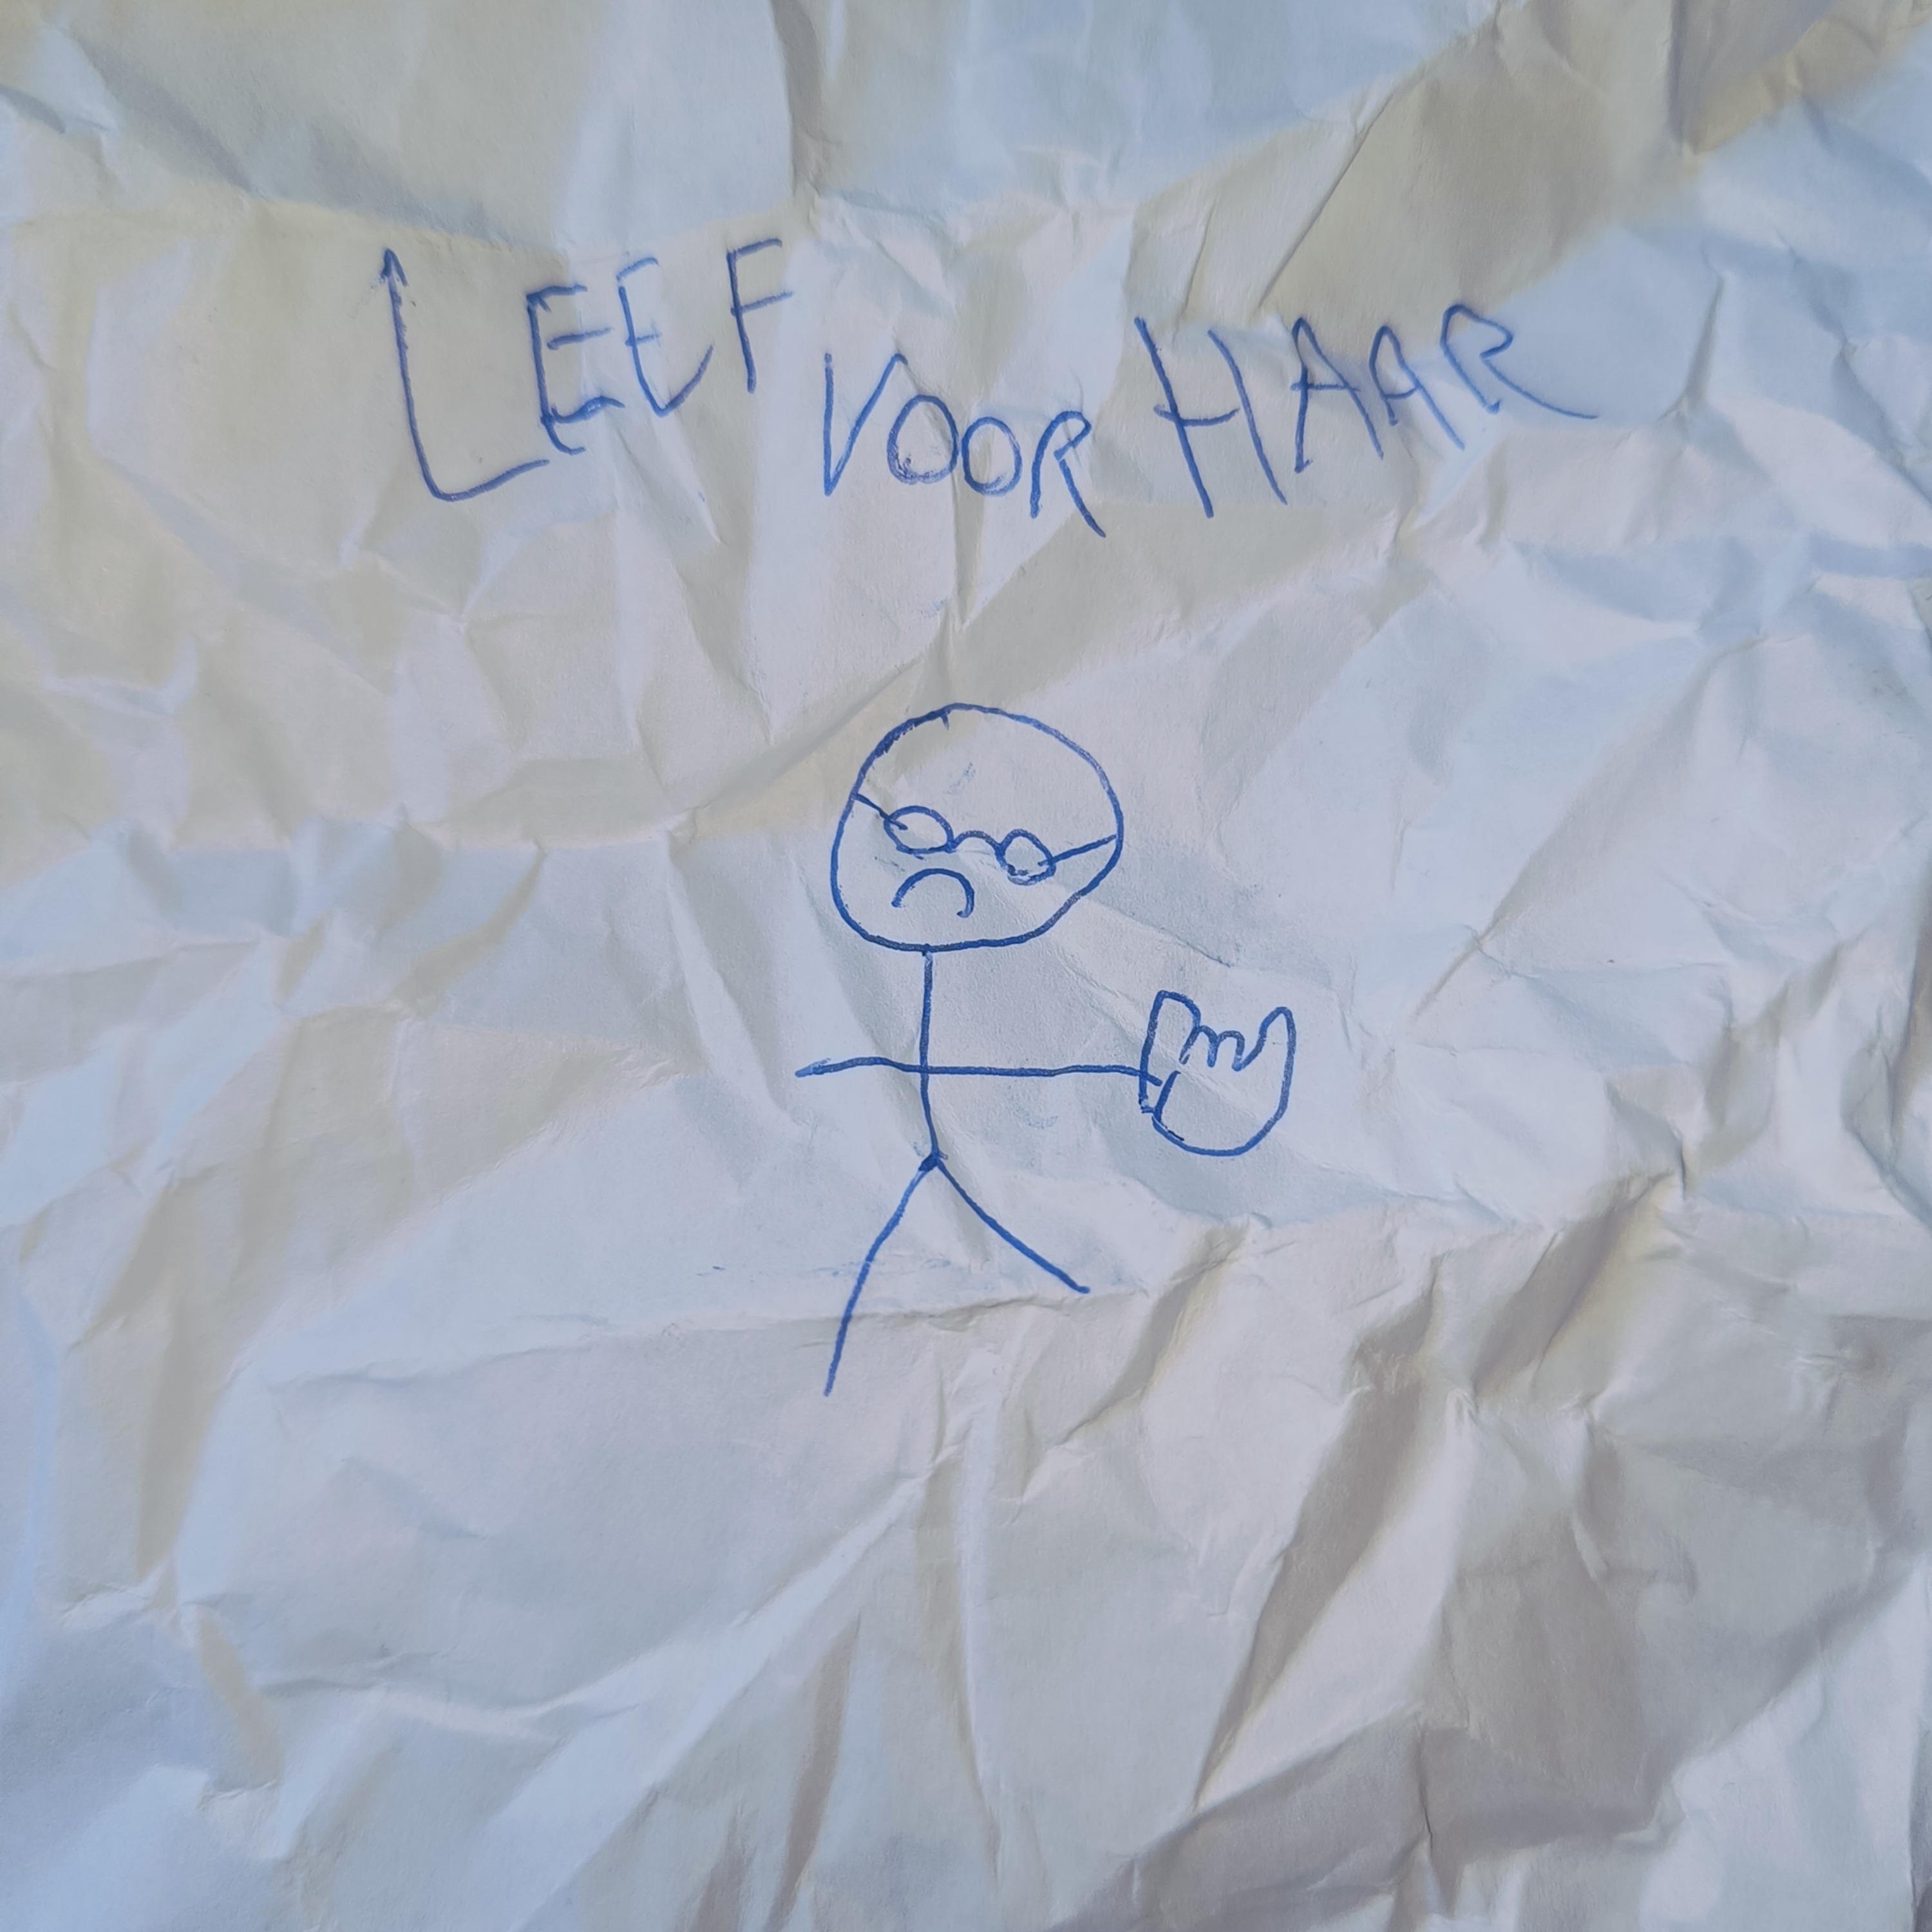 LEEF VOOR HAAR